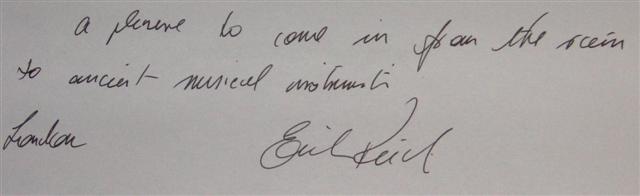 a pleasure to come in from the rain
to ancient musical instruments
London
Erich Reich